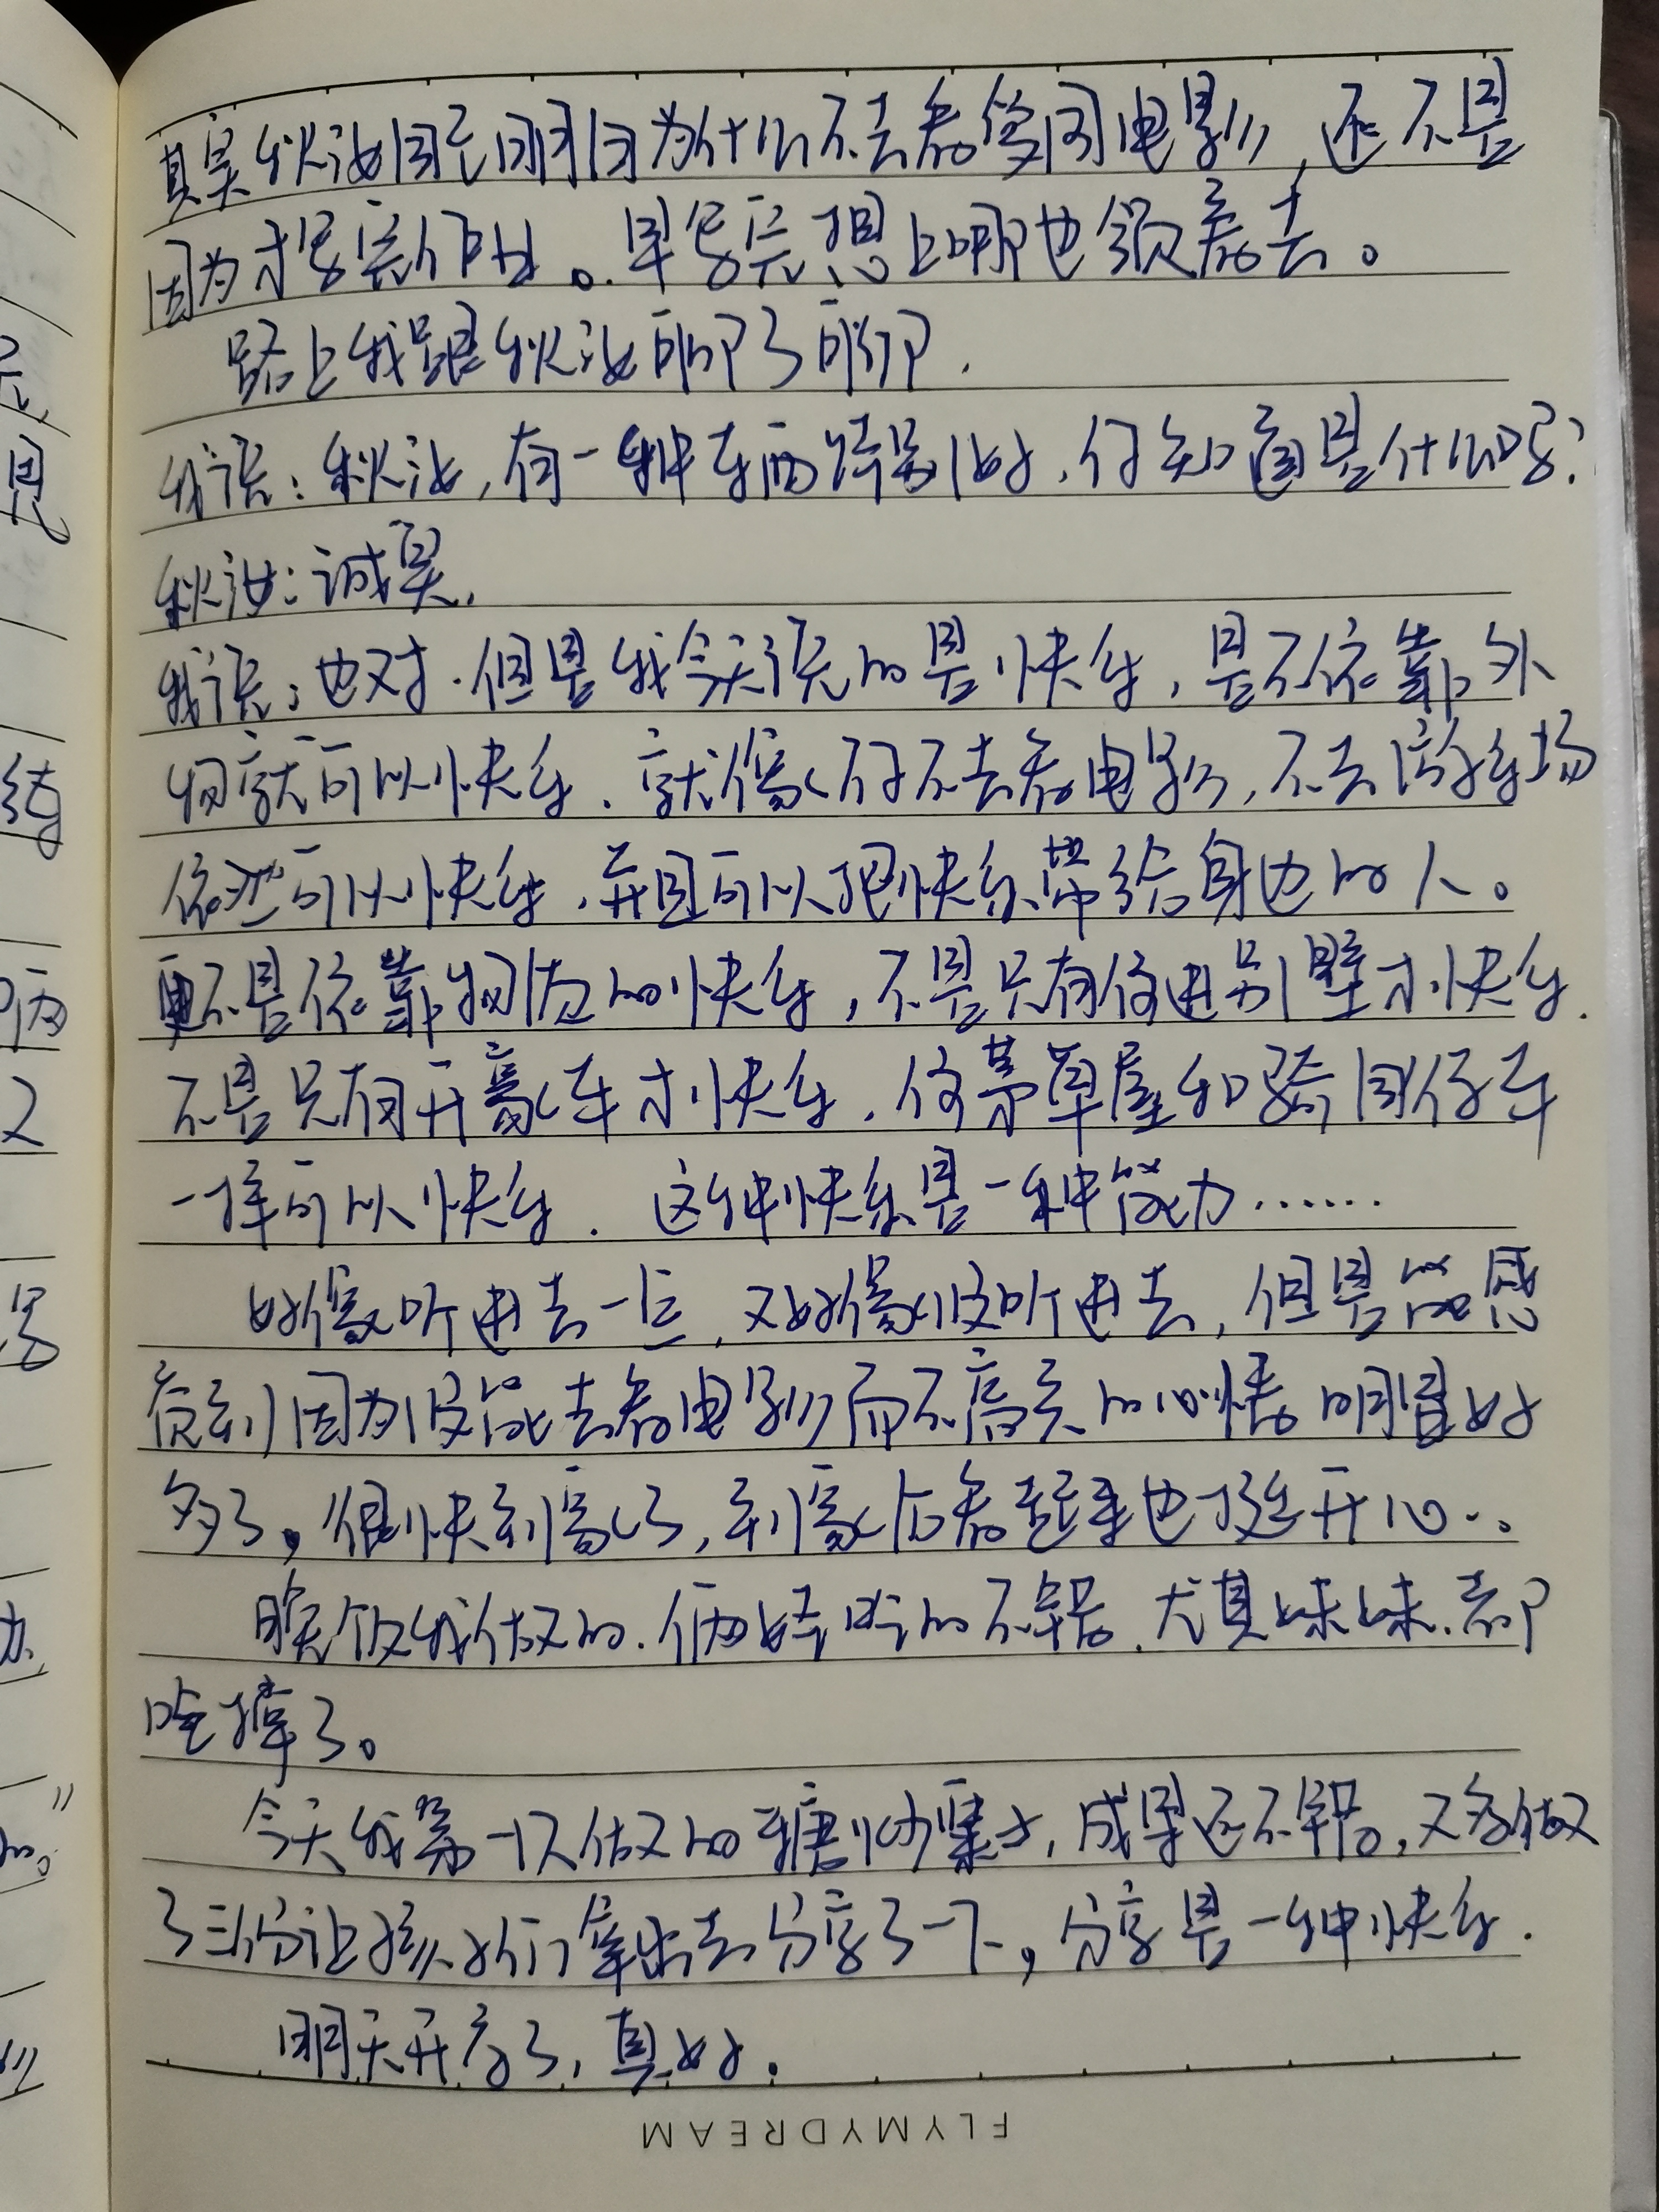 其实秋汝固已明白为什么不去看算间电影，还不是
因为才写完作业。早写完想上哪也领着去。
路上我跟秋汝聊了聊.
我说：秋汝，有一种东西特别好，你知道是什么吗？
秋汝：诚实.
我说：也对.但是我今天说的是快乐，是不依靠外
物就可以快乐.就像你不去看电影，不去游乐场
依然可以快乐，并且可以把快乐带给身边的人。
更不是依靠物质的快乐，不是只有住进别墅才快乐.
不是只有开豪车才快乐.住茅草屋和骑自行车
一样可以快乐. 这种快乐是一种能力……
好像听进去一点，又好像没听进去，但是能感
觉到因为没能去看电影而不高兴的心情明显好
多了。很快到家了，到家后看起来也挺开心..
晚饭我做的.俩娃吃的不错.尤其妹妹.都
吃撑了。
今天我第一次做的糖炒栗子，成果还不错，又多做
了三份让孩子们拿出去分享了一下，分享是一种快乐.
明天开学了，真好.
FLYMYDREAM